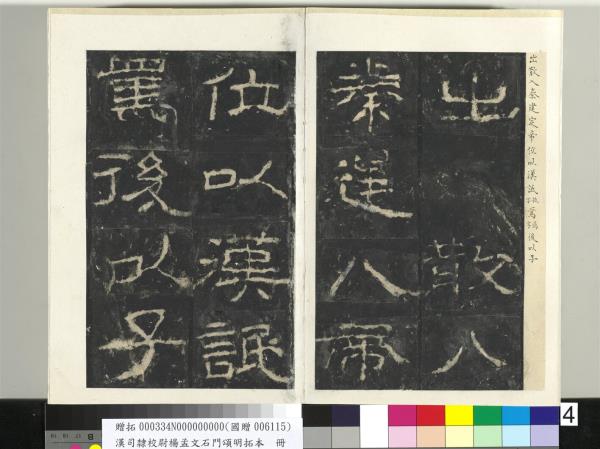 出散入秦建定帝位以漢詆焉後以子
出散入
秦建定帝
位以漢詆
焉後以子
贈拓 000334N000000000(國贈 006115)
漢司隸校尉楊孟文石門頌明拓本 冊
4
B